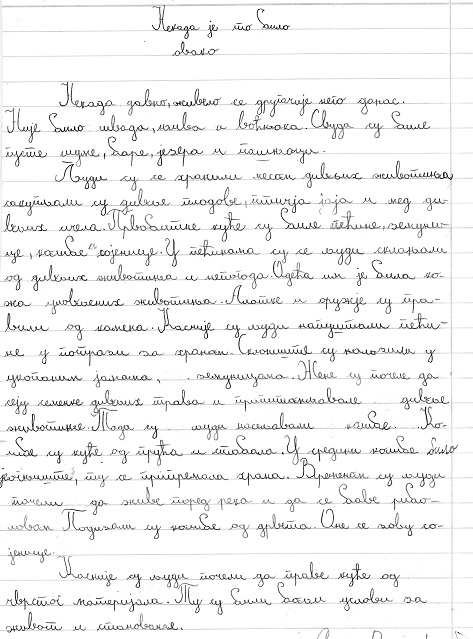 Некада је то било
овако
Некада давно, живело се другачије него данас.
Није било ливада, њива и воћњака. Свуда су биле
густе шуме, баре, језера и пашњаци.
Људи су се хранили месом дивљих животиња,
сакупљали су дивље плодове, птичја јаја и мед ди-
вљих пчела. Првобитне куће су биле пећине, земуни-
це, колибе и сојенице. У пећинама су се људи склањали
од дивљих животиња и непогода. Одећа им је била ко-
жа уловљених животиња. Алатке и оружје су пра-
вили од камена. Касније су људи напуштали пећи-
не у потрази за храном. Склониште су налазили у
укопаним јамама, земуницама. Жене су почеле да
сеју семенке дивљих трава и припитомљавале дивље
животиње. Тада су људи насељавали колибе. Ко-
либе су куће од прућа и стабала. У средини колибе било
је огњиште, ту се припремала храна. Временом су људи
почели да живе поред река и да се баве рибо-
ловом. Подизали су колибе од дрвета. Оне се зову со-
јенице.
Касније су људи почели да праве куће од
чврстог материјала. Ту су били бољи услови за
живот и становање.